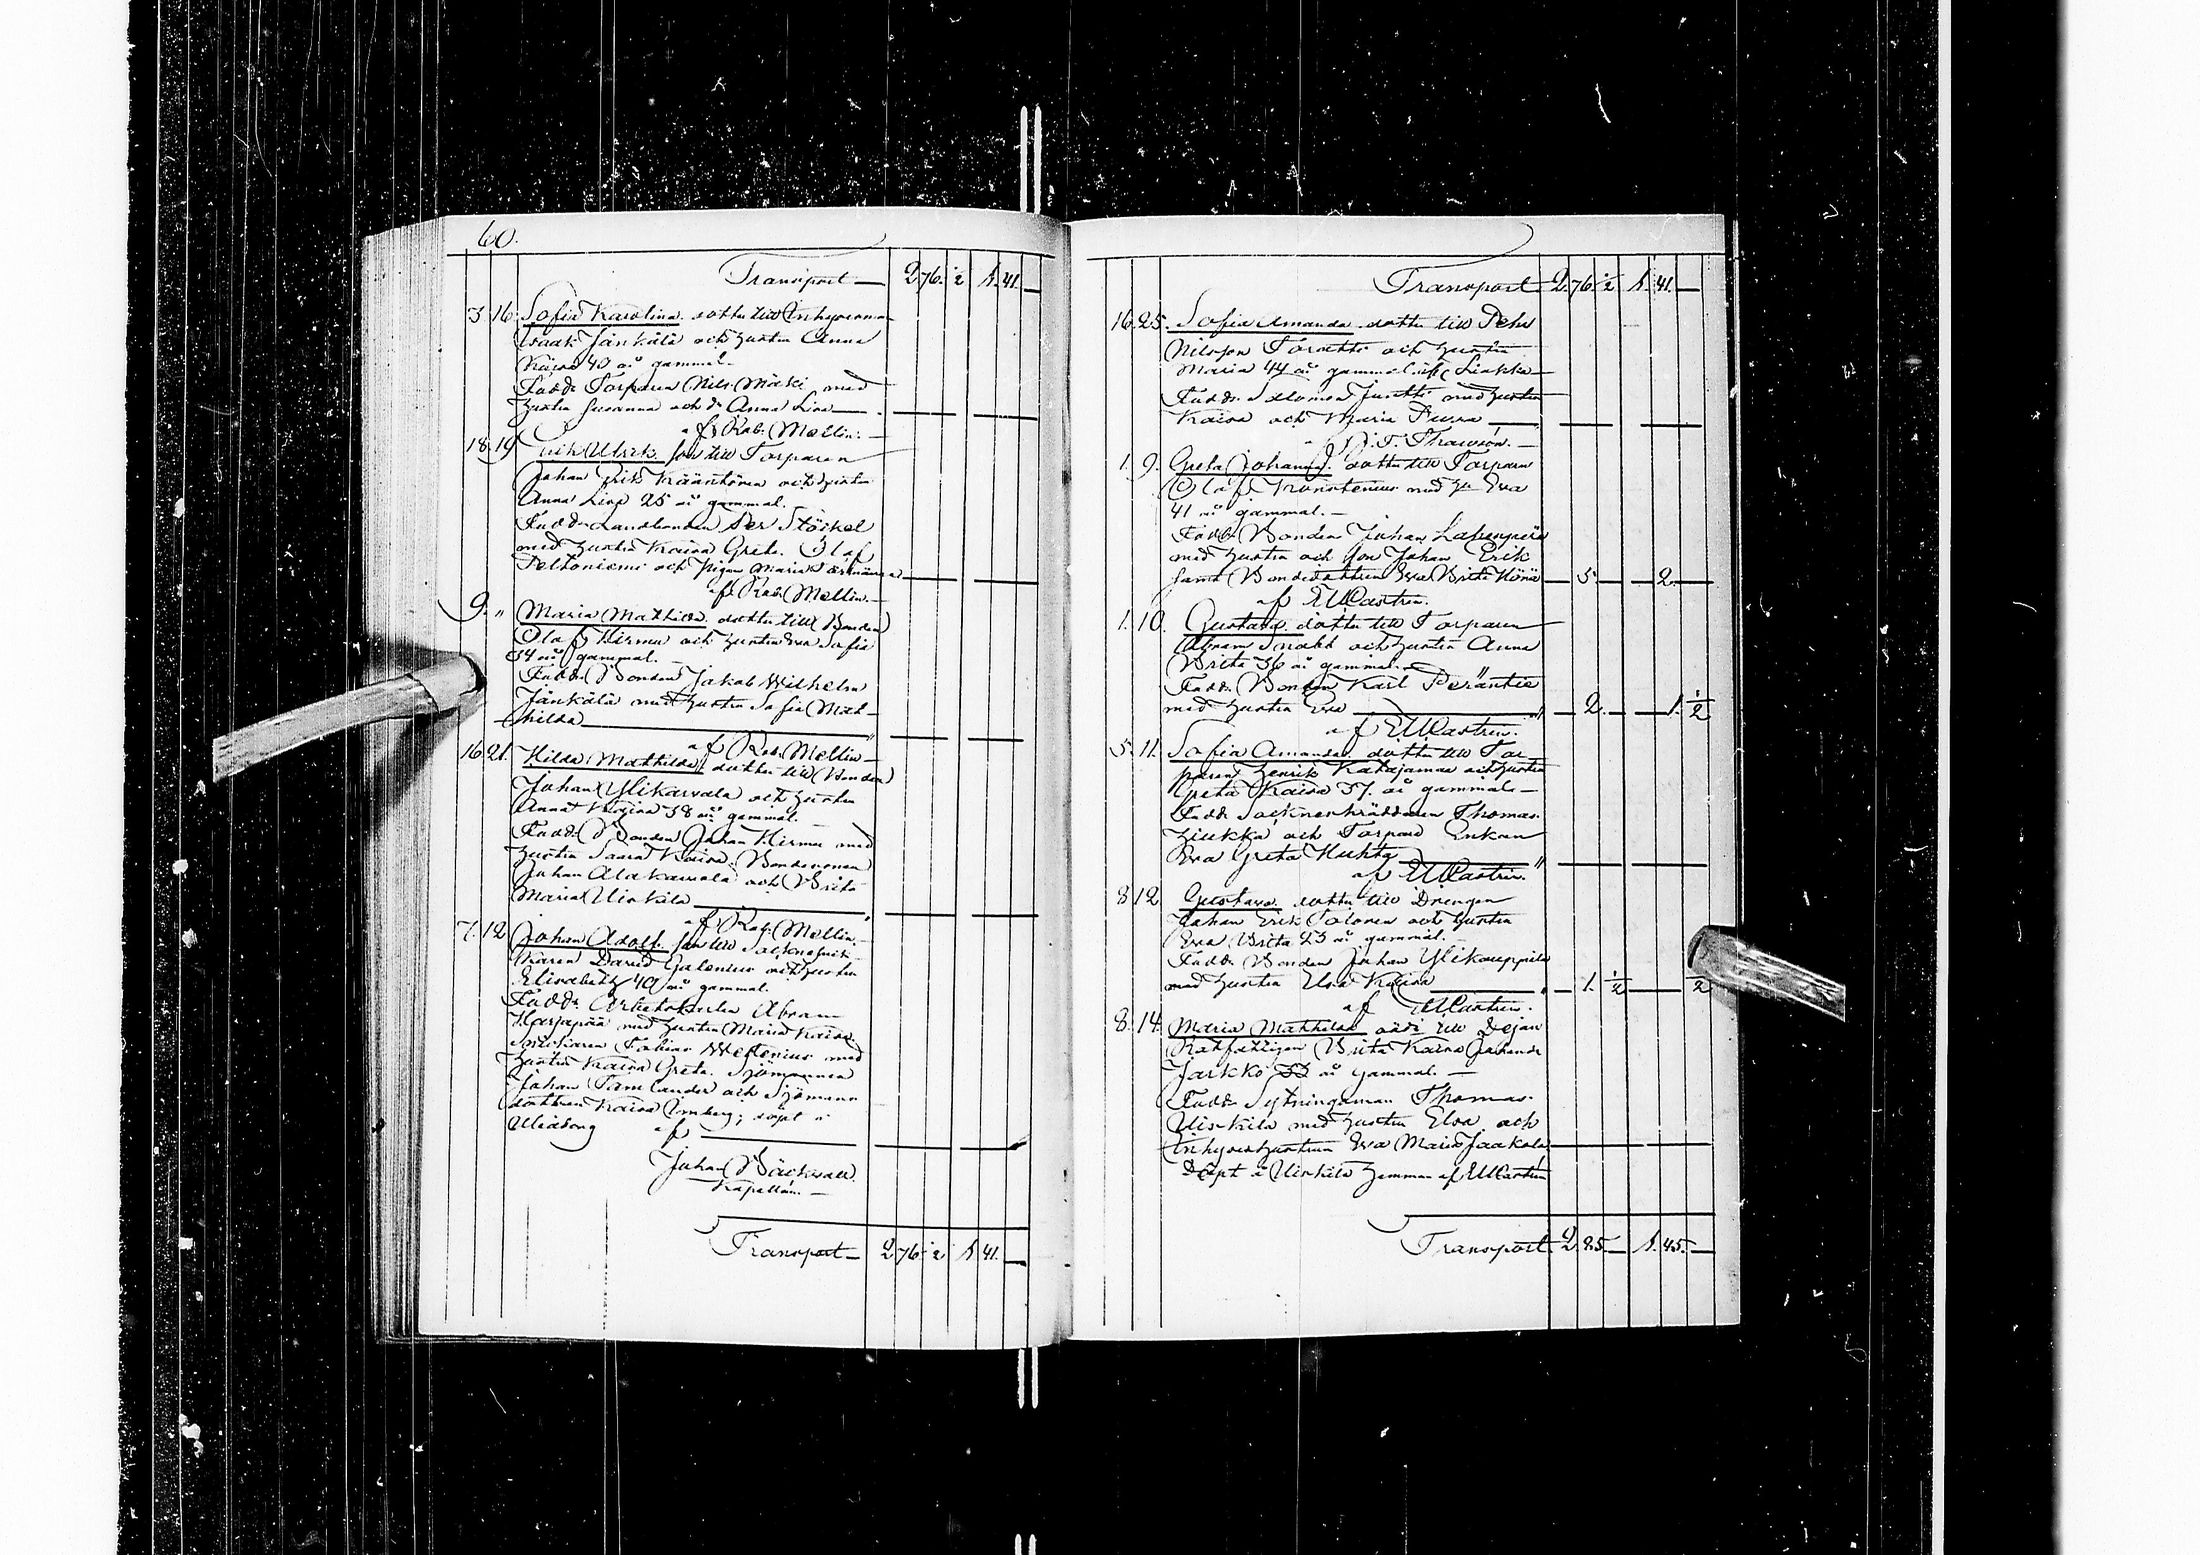 60.
Transport — 2 76. ½ 1. 41. —
3. 16. Sofia Karolina. dotter till Inhysesman
Isaak Jänkälä och hustru Anna
Kaisa 43 år gammal. —
Fadd: Torparen Nils Mäki med
hustru Susanna och d: Anna Lisa —
af Rab. Mellin. —
18. 19. Erik Ulrik. Son till Torparen
Johan Erik och hustru
Anna Lisa 25 år gammal. —
Fadd: Landbonden Per Stöckel
med hustru Kaisa Greta. Olaf
Peltoniemi och pigan Maria
af Rab. Mellin. —
9. " Maria Mathilda. dotter till Bonden
Olaf Hirmu och hustru Eva Sofia
34 år gammal. —
Fadd: Bonden Jakob Wilhelm
Jänkälä med hustru Sofia Mat-
hilda —
af Rab. Mellin —
16. 21. Hilda Mathilda, dotter till Bonden
Johan Ylikarvala och hustru
Anna Kaisa 38 år gammal.
Fadd: Bonden Johan Hirmu med
hustru Saara Kaisa. Bondesonen
Johan Alakarvala och Brita
Maria Uiskila —
af Rab. Mellin. —
7. 12. Johan Adolf. Son till
David Galenius och hustru
Elisabeth 40 år gammal.
Fadd: Arbetskarlen Abram
Harjapää med hustru Maria Kaisa.
Snickaren Tobias Westenius med
hustru Kaisa Greta. Sjömannen
Johan Tamlander och Sjömans
dottren Kaisa Imberg; döpt i
Uleåborg af —
Johan Bäckvall.
Kapellan. —
Transport — 2 76. ½ 1. 41. —
Transport — 2. 76. ½ 1. 41. —
16. 25. Sofia Amanda. dotter till Pehr
Nilsson och hustru
Maria 44 år gammal Liakka —
Fadd: Salomon Junttu med hustru
Kaisa och Maria —
af —
1. 9. Greta Johanna. dotter till Torparen
Olaf med hu Eva
41 år gammal. —
Fadd: Bonden Johan
med hustru och son Johan Erik
samt Bondedottren Eva Brita — 5. — 2. —
af EWCastrén.
1. 10. Gustava. dotter till Torparen
Abram och hustru Anna
Brita 36 år gammal. —
Fadd: Bonden Karl Peräntie
med hustru Eva — 2. — 1. ½
af EWCastrén.
5. 11. Sofia Amanda. dotter till Tor-
paren Henrik Katajamaa och hustru
Greta Kaisa 37. år gammal. —
Fadd: Sockneskräddaren Thomas
och Torpare Enkan
Eva Greta Huhta —
af EWCastrén.
8. 12. Gustava. dotter till Drengen
Johan Erik Salonen och hustru
Eva Brita 23 år gammal. —
Fadd: Bonden Johan Ylikauppila
med hustru Elsa Kaisa — 1. ½ — ½
af EWCastrén.
8. 14. Maria Mathilda oädi till Dejan
Brita Kaisa
Jarkko 33 år gammal. —
Fadd: Sytningsman Thomas
Uiskila med hustru Elsa och
Inhyseshustrun Eva Maria Jaakola —
Döpt i Uiskila hemman af EWCastrén
Transport — 2. 85. — 1. 45. —